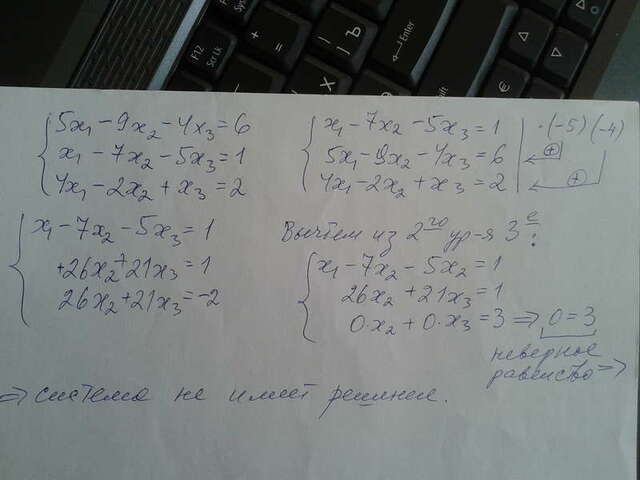 5x₁ - 9x₂ - 4x₃ = 6
x₁ - 7x₂ - 5x₃ = 1
4x₁ - 2x₂ + x₃ = 2
x₁ - 7x₂ - 5x₃ = 1 | ·(-5) (-4)
5x₁ - 9x₂ - 4x₃ = 6 +
4x₁ - 2x₂ + x₃ = 2 +
x₁ - 7x₂ - 5x₃ = 1
+26x₂ + 21x₃ = 1
26x₂ + 21x₃ = -2
Вычтем из 2го ур-я 3е:
x₁ - 7x₂ - 5x₂ = 1
26x₂ + 21x₃ = 1
0x₂ + 0·x₃ = 3 => 0 = 3
неверное
равенство =>
=> система не имеет решение.
F12
Scr Lk
Sys
+
=
-
Х
Ъ
Enter
€